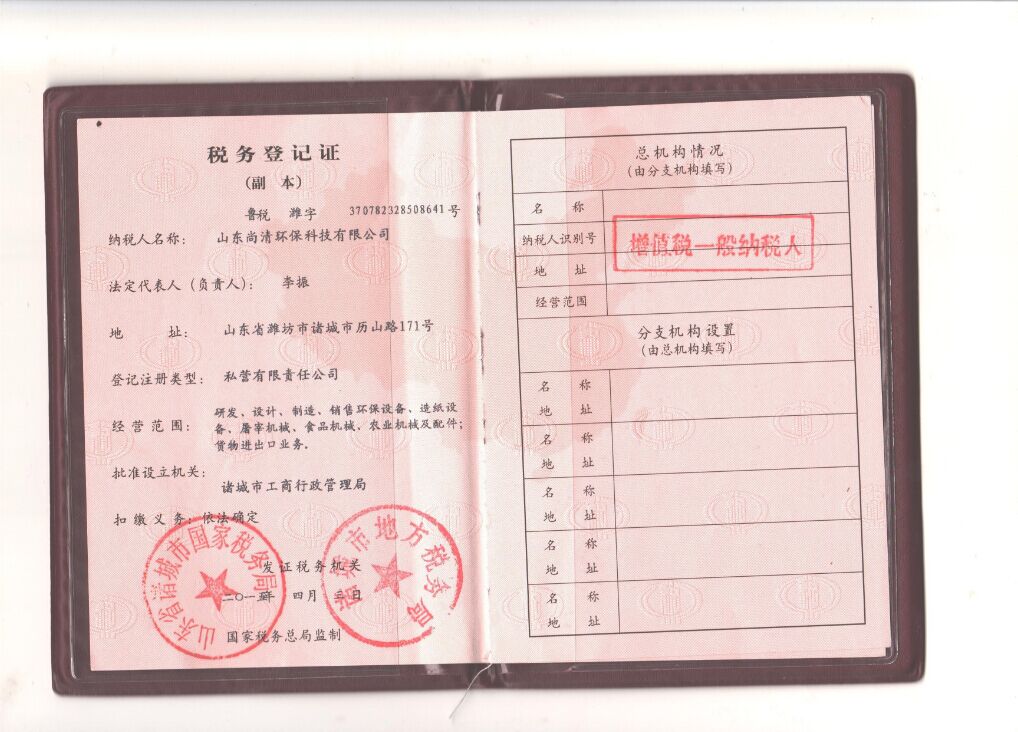 税务登记证
（副 本）
鲁税 潍字 370782328508641 号
纳税人名称： 山东尚清环保科技有限公司
法定代表人（负责人）： 李振
地 址： 山东省潍坊市诸城市历山路171号
登记注册类型： 私营有限责任公司
经营范围： 研发、设计、制造、销售环保设备、造纸设
备、屠宰机械、食品机械、农业机械及配件；
货物进出口业务。
批准设立机关： 诸城市工商行政管理局
扣缴义务：依法确定
山东省诸城市国家税务局
诸城市地方税务局
发证税务机关
二〇一五年 四月 日
国家税务总局监制
总机构情况
（由分支机构填写）
名 称
纳税人识别号
增值税一般纳税人
地 址
经营范围
分支机构设置
（由总机构填写）
名 称
地 址
名 称
地 址
名 称
地 址
名 称
地 址
名 称
地 址